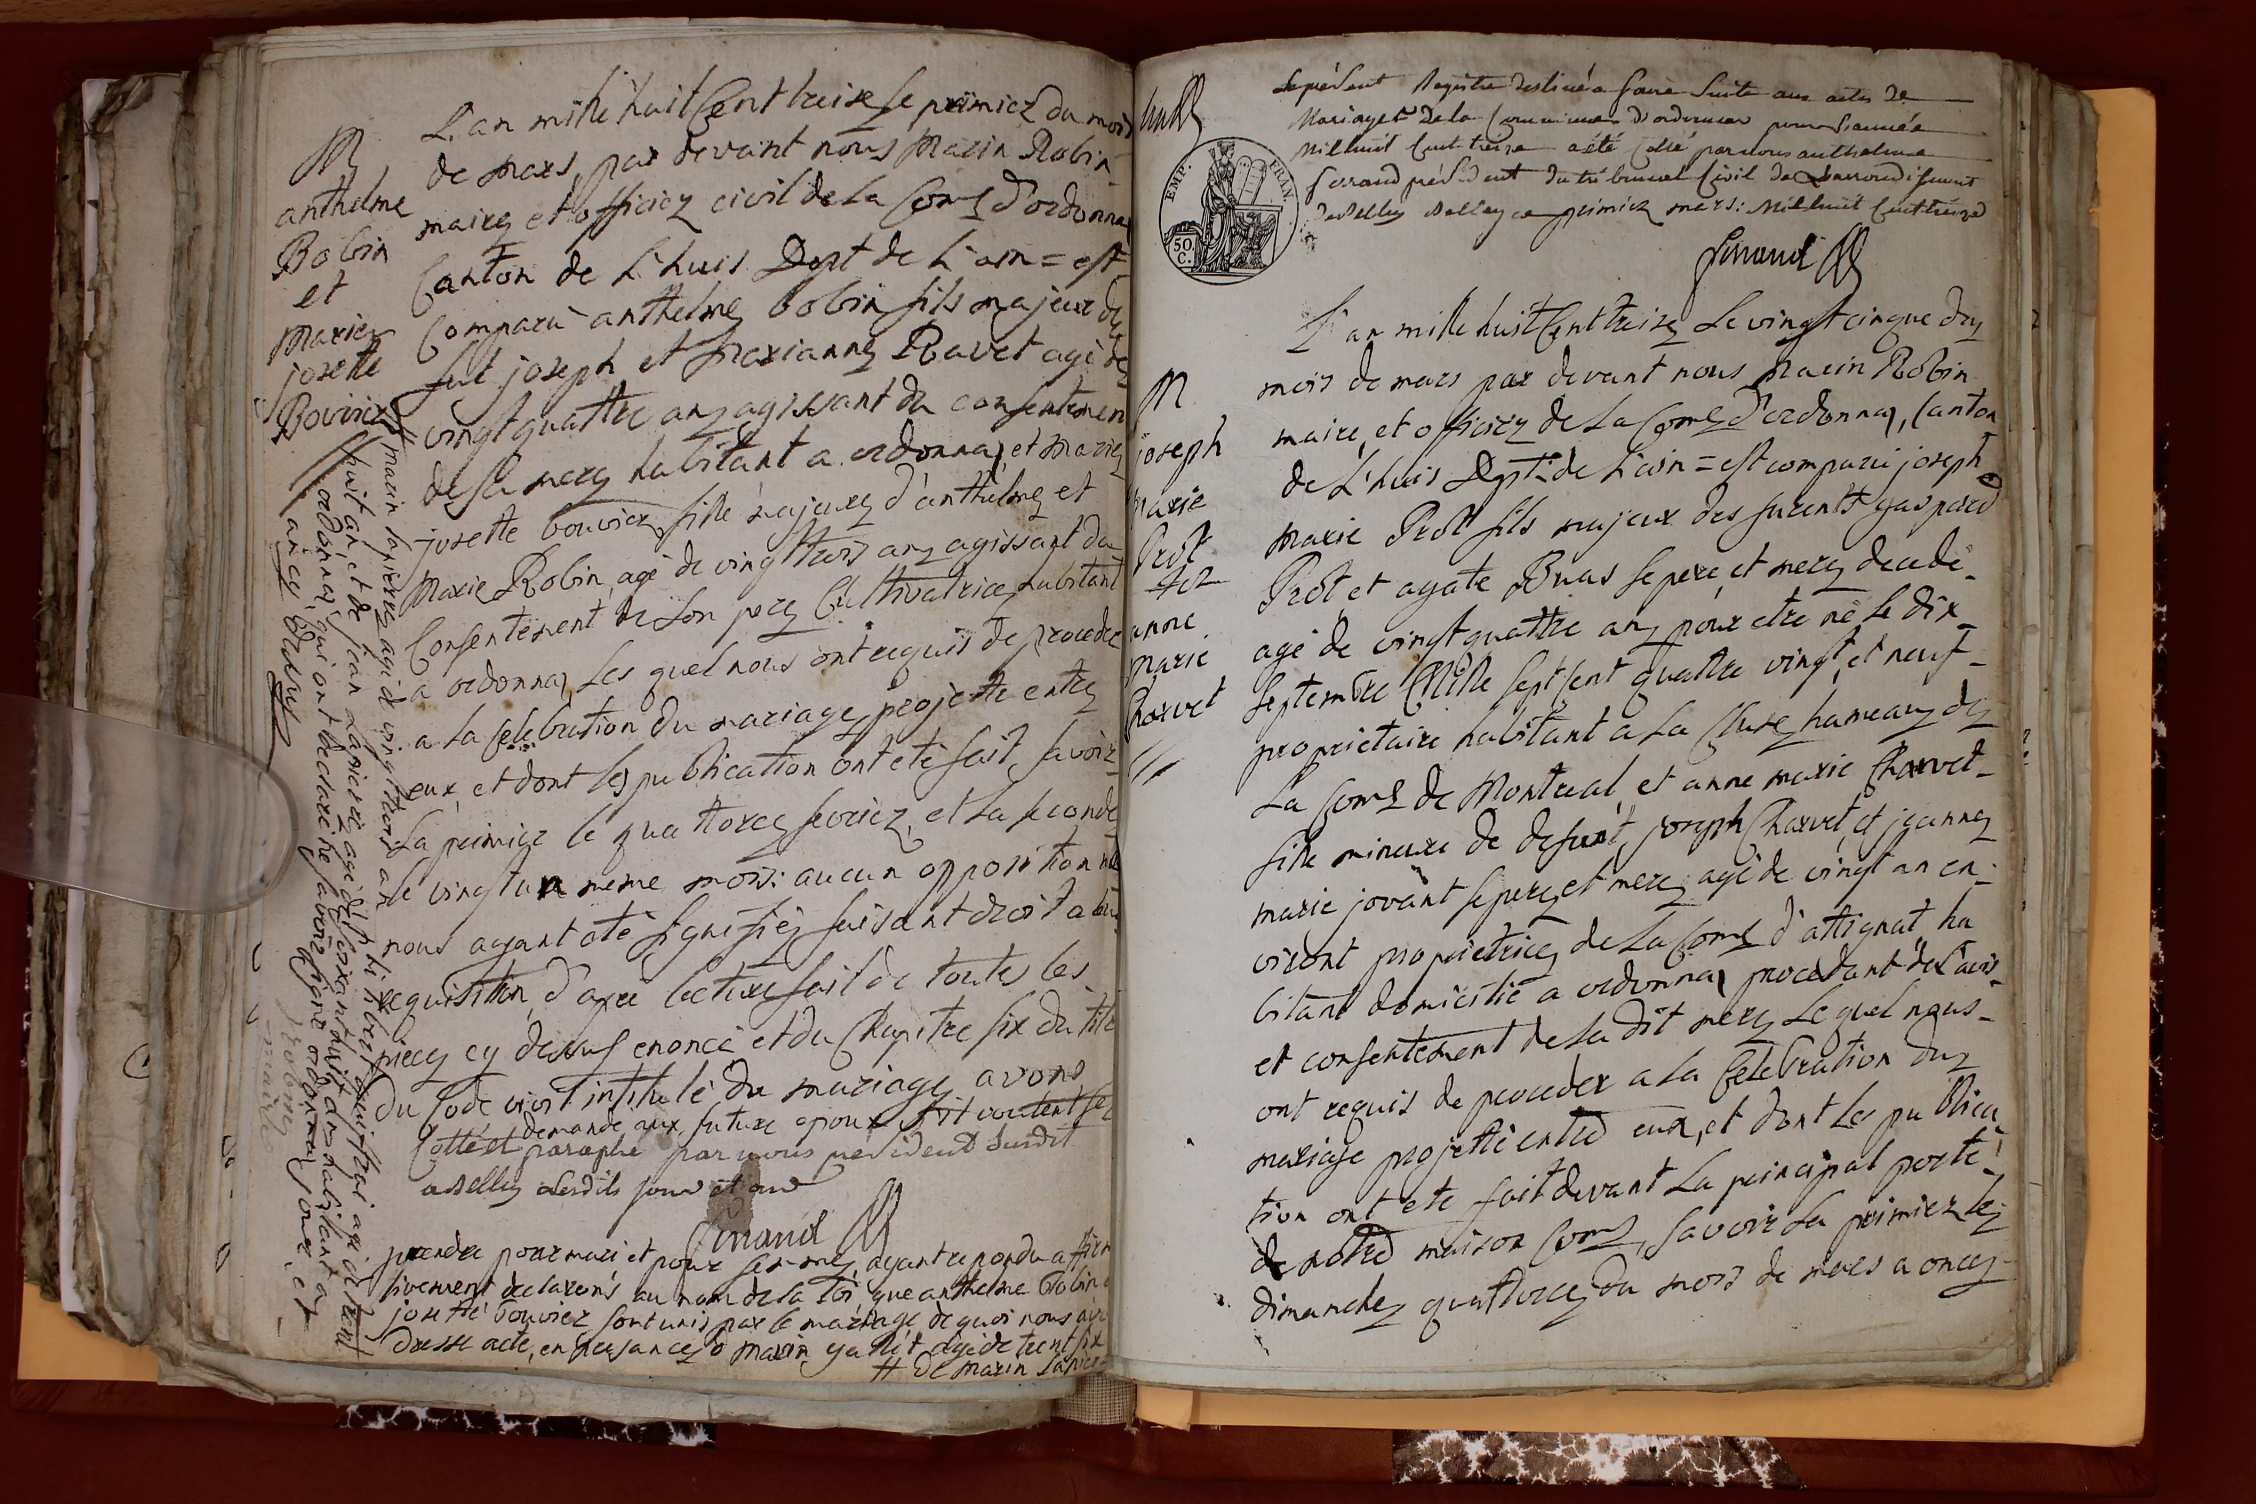 M
anthelme
Bobin
et
Marie
josette
Bouvier
L'an mille huit Cent treize le primier du mois
de mars, par devant nous Marin Robin
maire et officier civil de la Com̃e d'ordonnas
Canton de L'huis Dept de L'ain = est
Comparu anthelme bobin fils majeur de
fut joseph et Marianne Ravet agé de
vingt quattre ans agissant du consentemen
de sa mere habitant a ordonnas, et Marie
josette bouvier fille majeure d'anthelme et
Marie Robin, agé de vingt trois ans agissant du
Consentement de son pere Cultivatrice habitant
a ordonnas Les quel nous ont requis de proceder
a la Celebration du mariage projette entre
eux, et dont les publication ont eté fait, savoir
La primier le quattorze fevrier, et la seconde
le vingt un meme mois: aucun opposition
nous ayant eté signifiéz faisant droit a leur
requisition, d'apré lecture fait de toutes les
pieces cy dessus enoncé et du Chapitre six du titre
du Code civil intitulé du mariage avons
demandé aux future epoux s'il veulent se
Cotté et paraphé par nous président susdit
a Belley Lesdits jour et an
Ferrand
prendre pour mari et pour femme, ayant repondu affirm
tivement declarons au nom de la Loi, que anthelme Bobin e
josette bouvier sont unis par le mariage de quoi nous avon
dressé acte, en presance de marin gallet agé de trent six
# de marin Lapier
marin lapierre agé de vingt trois an
huit an, et de jean Lapierre agé de soixant huit ans habitant a
ordonnas, qui ont declaré ne savoir signé ordonnas jour, et
an cy dessus
Robin
maire
Le présent Registre destiné a faire suite aux actes de
Mariages de la Commune d'ordonnas pour l'année
Mil huit Cent treize a été Cotté par nous anthelme
Ferrand président du tribunal Civil de L'arrondissement
de Belley Belley ce primier mars: Mil huit Cent treize
Ferrand
EMP: FRAN.
50.
C.
M
joseph
marie
Prost
et
anne
Marie
Charvet
L'an mille huit Cent treize Le vingt cinque du
mois de mars par devant nous Marin Robin
maire, et officier de la Com̃e d'ordonnas, Canton
de L'huis Dept. de L'ain = est comparu joseph
marie Prost fils majeur des furents gaspard
Prost et agate Buas se pere, et mere decedé
agé de vingt quattre ans pour etre né le dix
septembre Mille sept sent quattre vingt, et neuf
proprietaire habitant a la Cluse hameau de
La Com̃e de Montreal, et anne marie Charvet
fille mineure de defunt, joseph Charvet, et jeanne
marie jovant se pere, et mere, agé de vingt an en
viront proprietrice de la Com̃e d'attignat, ha
bitant domicilié a ordonnas procedant de L'avis
et consentement de la dit mere, Le quel nous
ont requis de proceder a la Celebration du
mariage projetté entre eux, et dont Les publica
tion ont eté fait devant La principal porte
de notre maison Com̃e, savoir La primier le
dimanche quattorze du mois de mars a onze